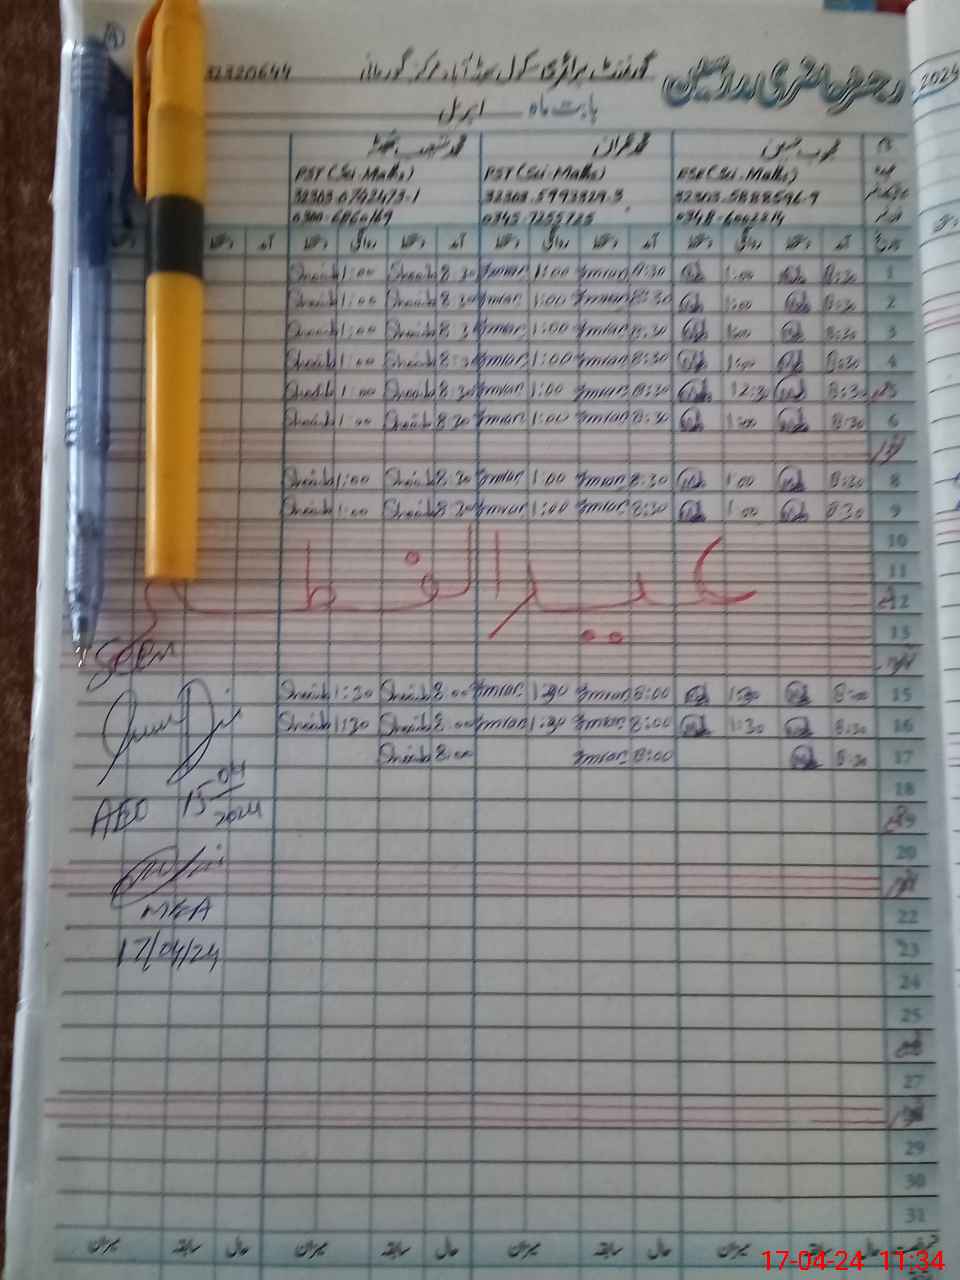 رجسٹر حاضری مدرسین گورنمنٹ پرائمری سکول مرکز گورمانی 32320644
بابت ماہ اپریل
2024
محمد عمران
ESE (Sci.Maths) PST (Sci Maths) PST (Sci Maths)
32303-5993329-3 32303-0742473-1
0348-6002214 0345-7255725 0300-6860169
آمد دستخط روانگی دستخط آمد دستخط روانگی دستخط آمد دستخط روانگی دستخط آمد دستخط
1 8:30 1:00 8:30 Imran 1:00 Imran 8:30 Shoaib 1:00 Shoaib
2 8:30 1:00 8:30 Imran 1:00 Imran 8:30 Shoaib 1:00 Shoaib
3 8:30 1:00 8:30 Imran 1:00 Imran 8:30 Shoaib 1:00 Shoaib
4 8:30 1:00 8:30 Imran 1:00 Imran 8:30 Shoaib 1:00 Shoaib
5 8:30 12:30 8:30 Imran 1:00 Imran 8:30 Shoaib 1:00 Shoaib
6 8:30 1:00 8:30 Imran 1:00 Imran 8:30 Shoaib 1:00 Shoaib
اتوار
8 8:30 1:00 8:30 Imran 1:00 Imran 8:30 Shoaib 1:00 Shoaib
9 8:30 1:00 8:30 Imran 1:00 Imran 8:30 Shoaib 1:00 Shoaib
10
11
عید الفطر
12
13
اتوار
Seen
15 8:00 1:30 8:00 Imran 1:30 Imran 8:00 Shoaib 1:30 Shoaib
16 8:30 1:30 8:00 Imran 1:30 Imran 8:00 Shoaib 1:30 Shoaib
17 8:30 8:00 Imran 8:00 Shoaib
18
AEO 15-04-2024
19
20
اتوار
22
MEA
23
17/04/24
24
25
27
اتوار
29
30
31
حال سابقہ میزان حال سابقہ میزان حال سابقہ میزان حال سابقہ میزان
17-04-24 11:34